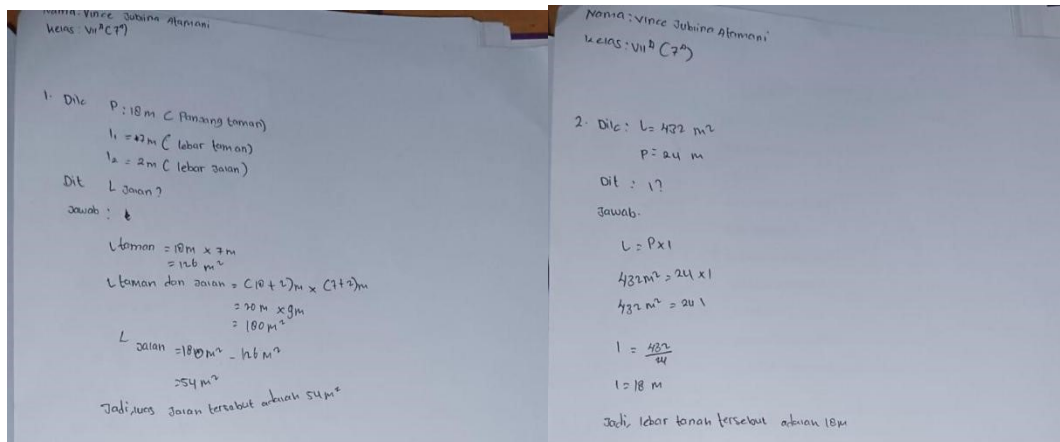 Nama: Vince Jubiina Atamani
Kelas: VII A (7A)
1. Dik P: 18m (Panjang taman)
l₁ = 7m (lebar taman)
l₂ = 2m (lebar jalan)
Dit L jalan?
Jawab:
L taman = 18m x 7m
= 126 m²
L taman dan jalan = (18 + 2)m x (7+2)m
= 20m x 9m
= 180 m²
L jalan = 180m² - 126 m²
= 54 m²
Jadi, luas jalan tersebut adalah 54m²
Nama: Vince Jubiina Atamani
Kelas: VII A (7A)
2. Dik: L = 432 m²
P = 24 m
Dit: l?
Jawab.
L = P x l
432m² = 24 x l
432 m² = 24 l
l = 432/24
l = 18 m
Jadi, lebar tanah tersebut adalah 18m